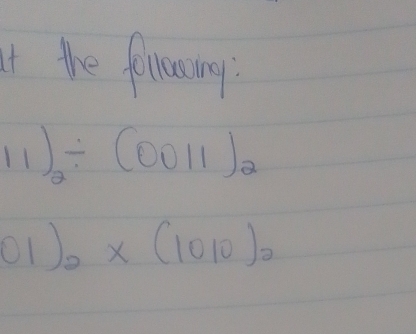 the following:
11)₂ ÷ (0011)₂
01)₂ × (1010)₂